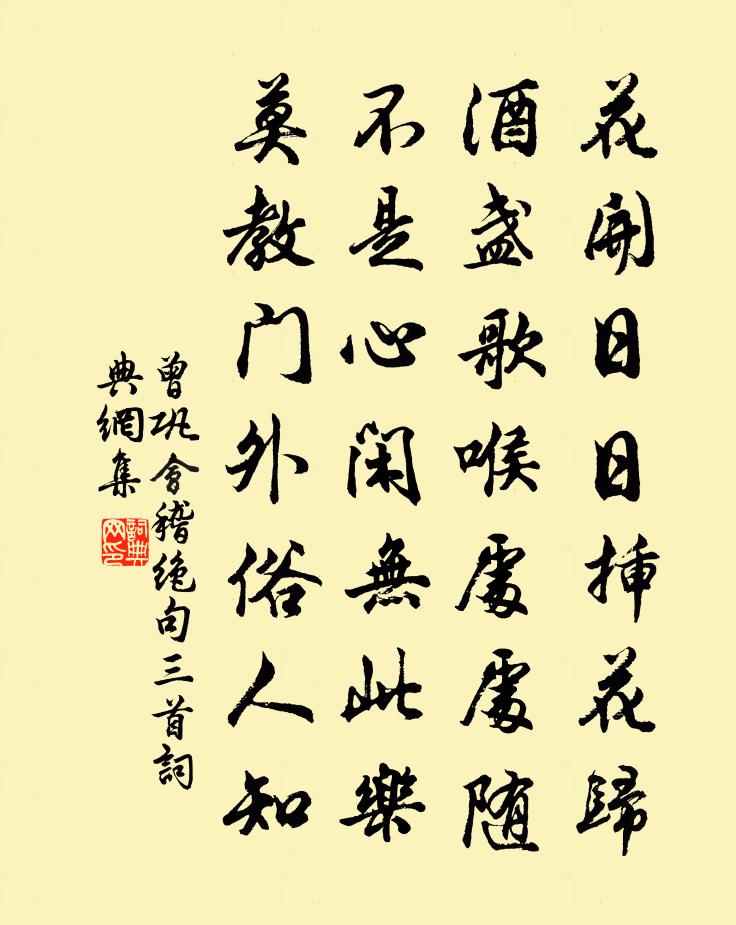 花開日日插花歸
酒盞歌喉處處随
不是心閑無此樂
莫教門外俗人知
曾巩會稽绝句三首詞
典網集
詞典
网印